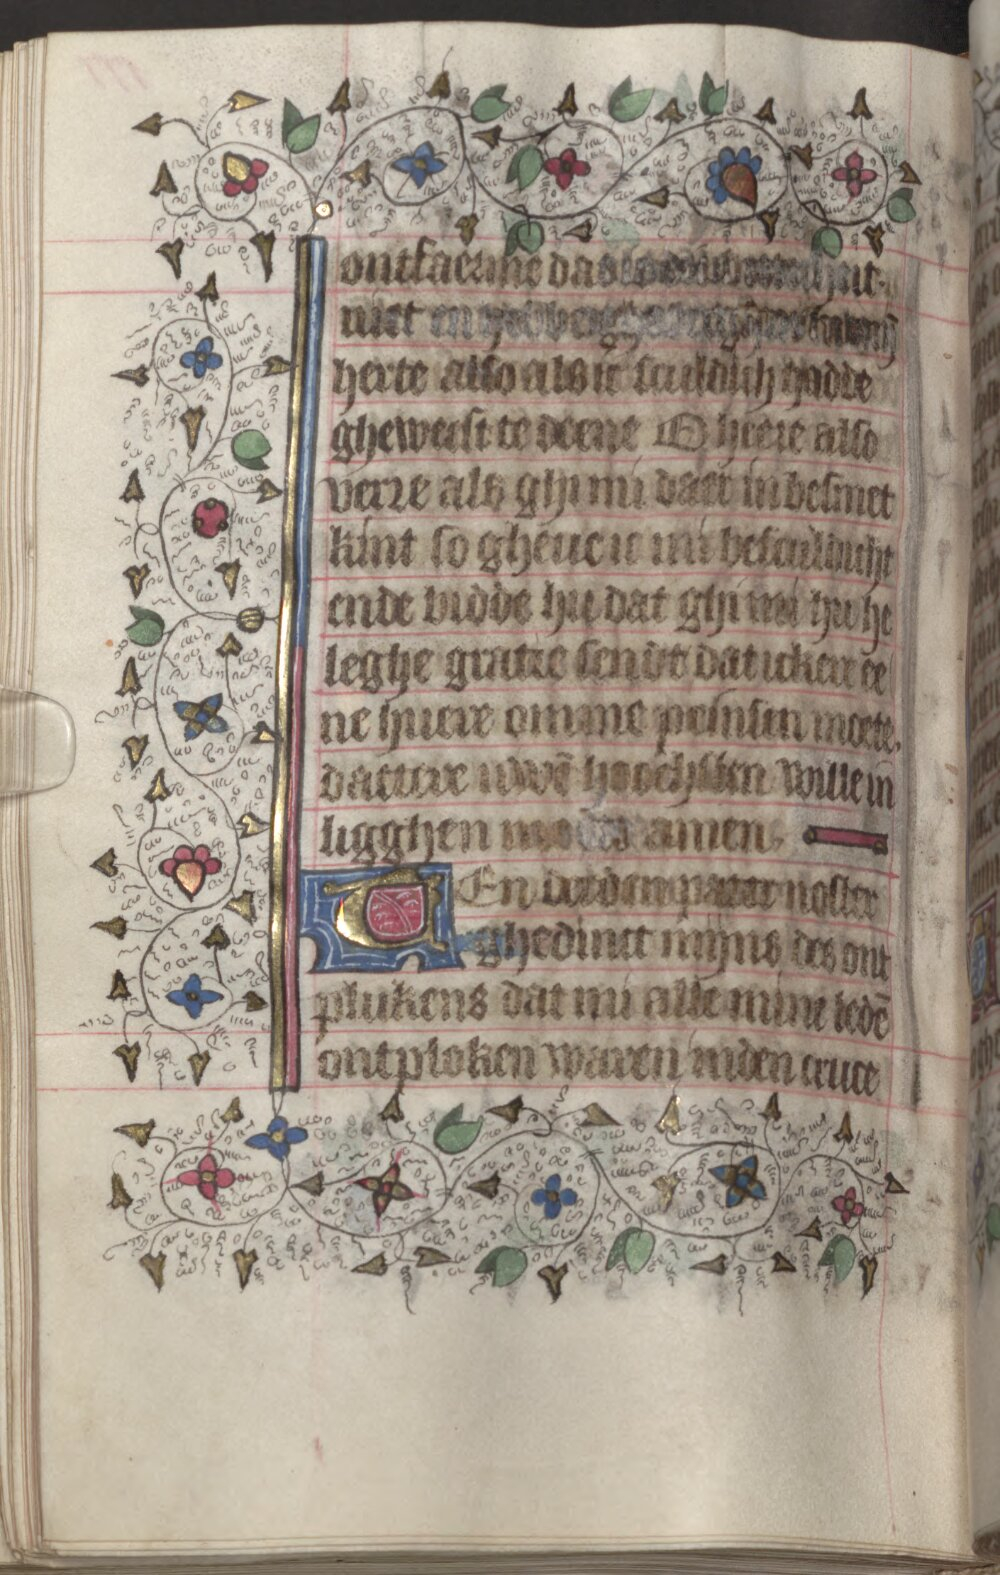 ontfaerme
niet en
herte also als ic sculdich hadde
gheweist te doene O heere also
verre als ghi mi daer in besmet
kint so gheve ic mi besculdicht
ende bidde hu dat ghi mi hu he
leghe gratie sendt dat icker ee
ne huere omme peinsen moete,
datter uwē hoochsten wille in
ligghen moete amen
En derden pater noster
ghedinct mijns des ont
plukens dat mi alle mine ledē
ontploken waren inden cruce